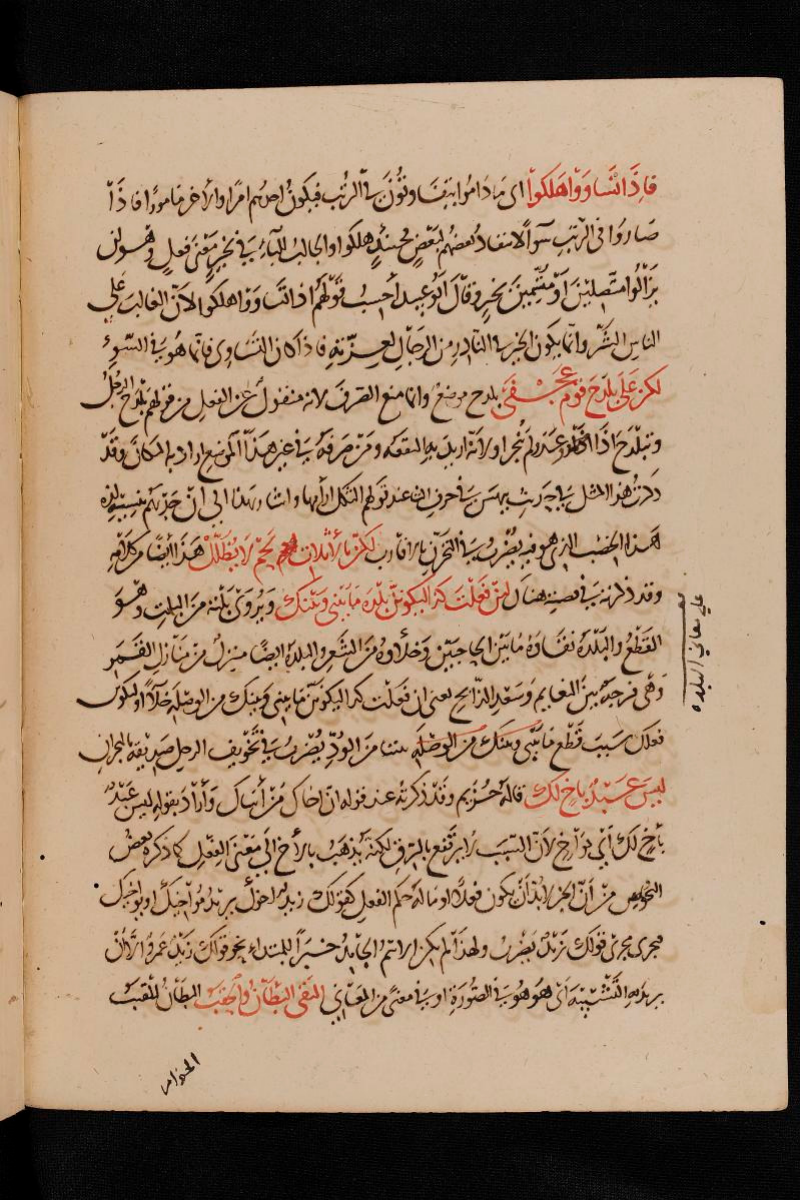 فاذا تساووا هلكوا اى ماداموا يتفاوتون في الرتب فيكون احدهم امرا والاخر مامورا فاذا
صاروا فى الرتب سوآء لا ينقاد بعضهم لبعض فحينئذ هلكوا او الجالب للباء في بخير معنى فعل وهو لن
يزالوا متصلين او متسمين بخير وقال ابو عبيد احسب قولهم اذا تساووا هلكوا لان الغالب على
الناس الشر وانما يكون الخير في النادر من الرجال لعزته فاذا كان التساوى فانما هو في السوء
لكن على بلدح قوم عجفى بلدح موضع وانما منع الصرف لانه منقول عن الفعل من قولهم بلدح الرجل
وتبلدح اذا وعد ولم ينجز او لانه اريد به البقعة ومن صرفه في غير هذا الموضع اراد به المكان وقد
ذكرت هذا المثل في حديث بيهس في حرف الثاء عند قولهم الثكل ارأمها واشار بهذا الى ان
هذا الخصب الذى هو فيه يضرب في التحزن بالاقارب لكن بالاثلاث لحم لا يظلل هذا ايضا من كلامه
وقد ذكرته في قصته هناك لئن فعلت كذا ليكونن بلدة ما بيني وبينك ويروى بلتة من البلت وهو
القطع والبلدة نقاوة ما بين الحاجبين وخلاوه من الشعر والبلدة ايضا منزل من منازل القمر
وهى فرجة بين النعايم وسعد الذابح يعنى ان فعلت كذا ليكونن ما بيني وبينك من الوصلة خلاء او ليكونن
فعلك سبب قطع ما بيني وبينك من الوصلة بيننا من الود يضرب في تخويف الرجل صديقه بالهجران
ليس عبد باخ لك قاله خزيم وقد ذكرته عند قوله ان اخاك من آساك واراد بقوله ليس عبد
باخ لك اي بمواخ لان النسب لا يرتفع بالرق لكنه يذهب بالاخ الى معنى الفعل كما ذكره بعض
النحويين من ان الخبر لابد ان يكون فعلا او ماله حكم الفعل كقولك زيد اخوك يريد مواخيك او يواخيك
فيجرى مجرى قولك زيد يضرب ولهذا لم يكن الاسم الجامد خبرا للمبتداء نحو قولك زيد عمرو الا ان
يريد به التشبيه اى هو هو في الصورة او في معنى من المعانى التقى البطان والحقب البطان للقتب
الحزام
على معاني البلده